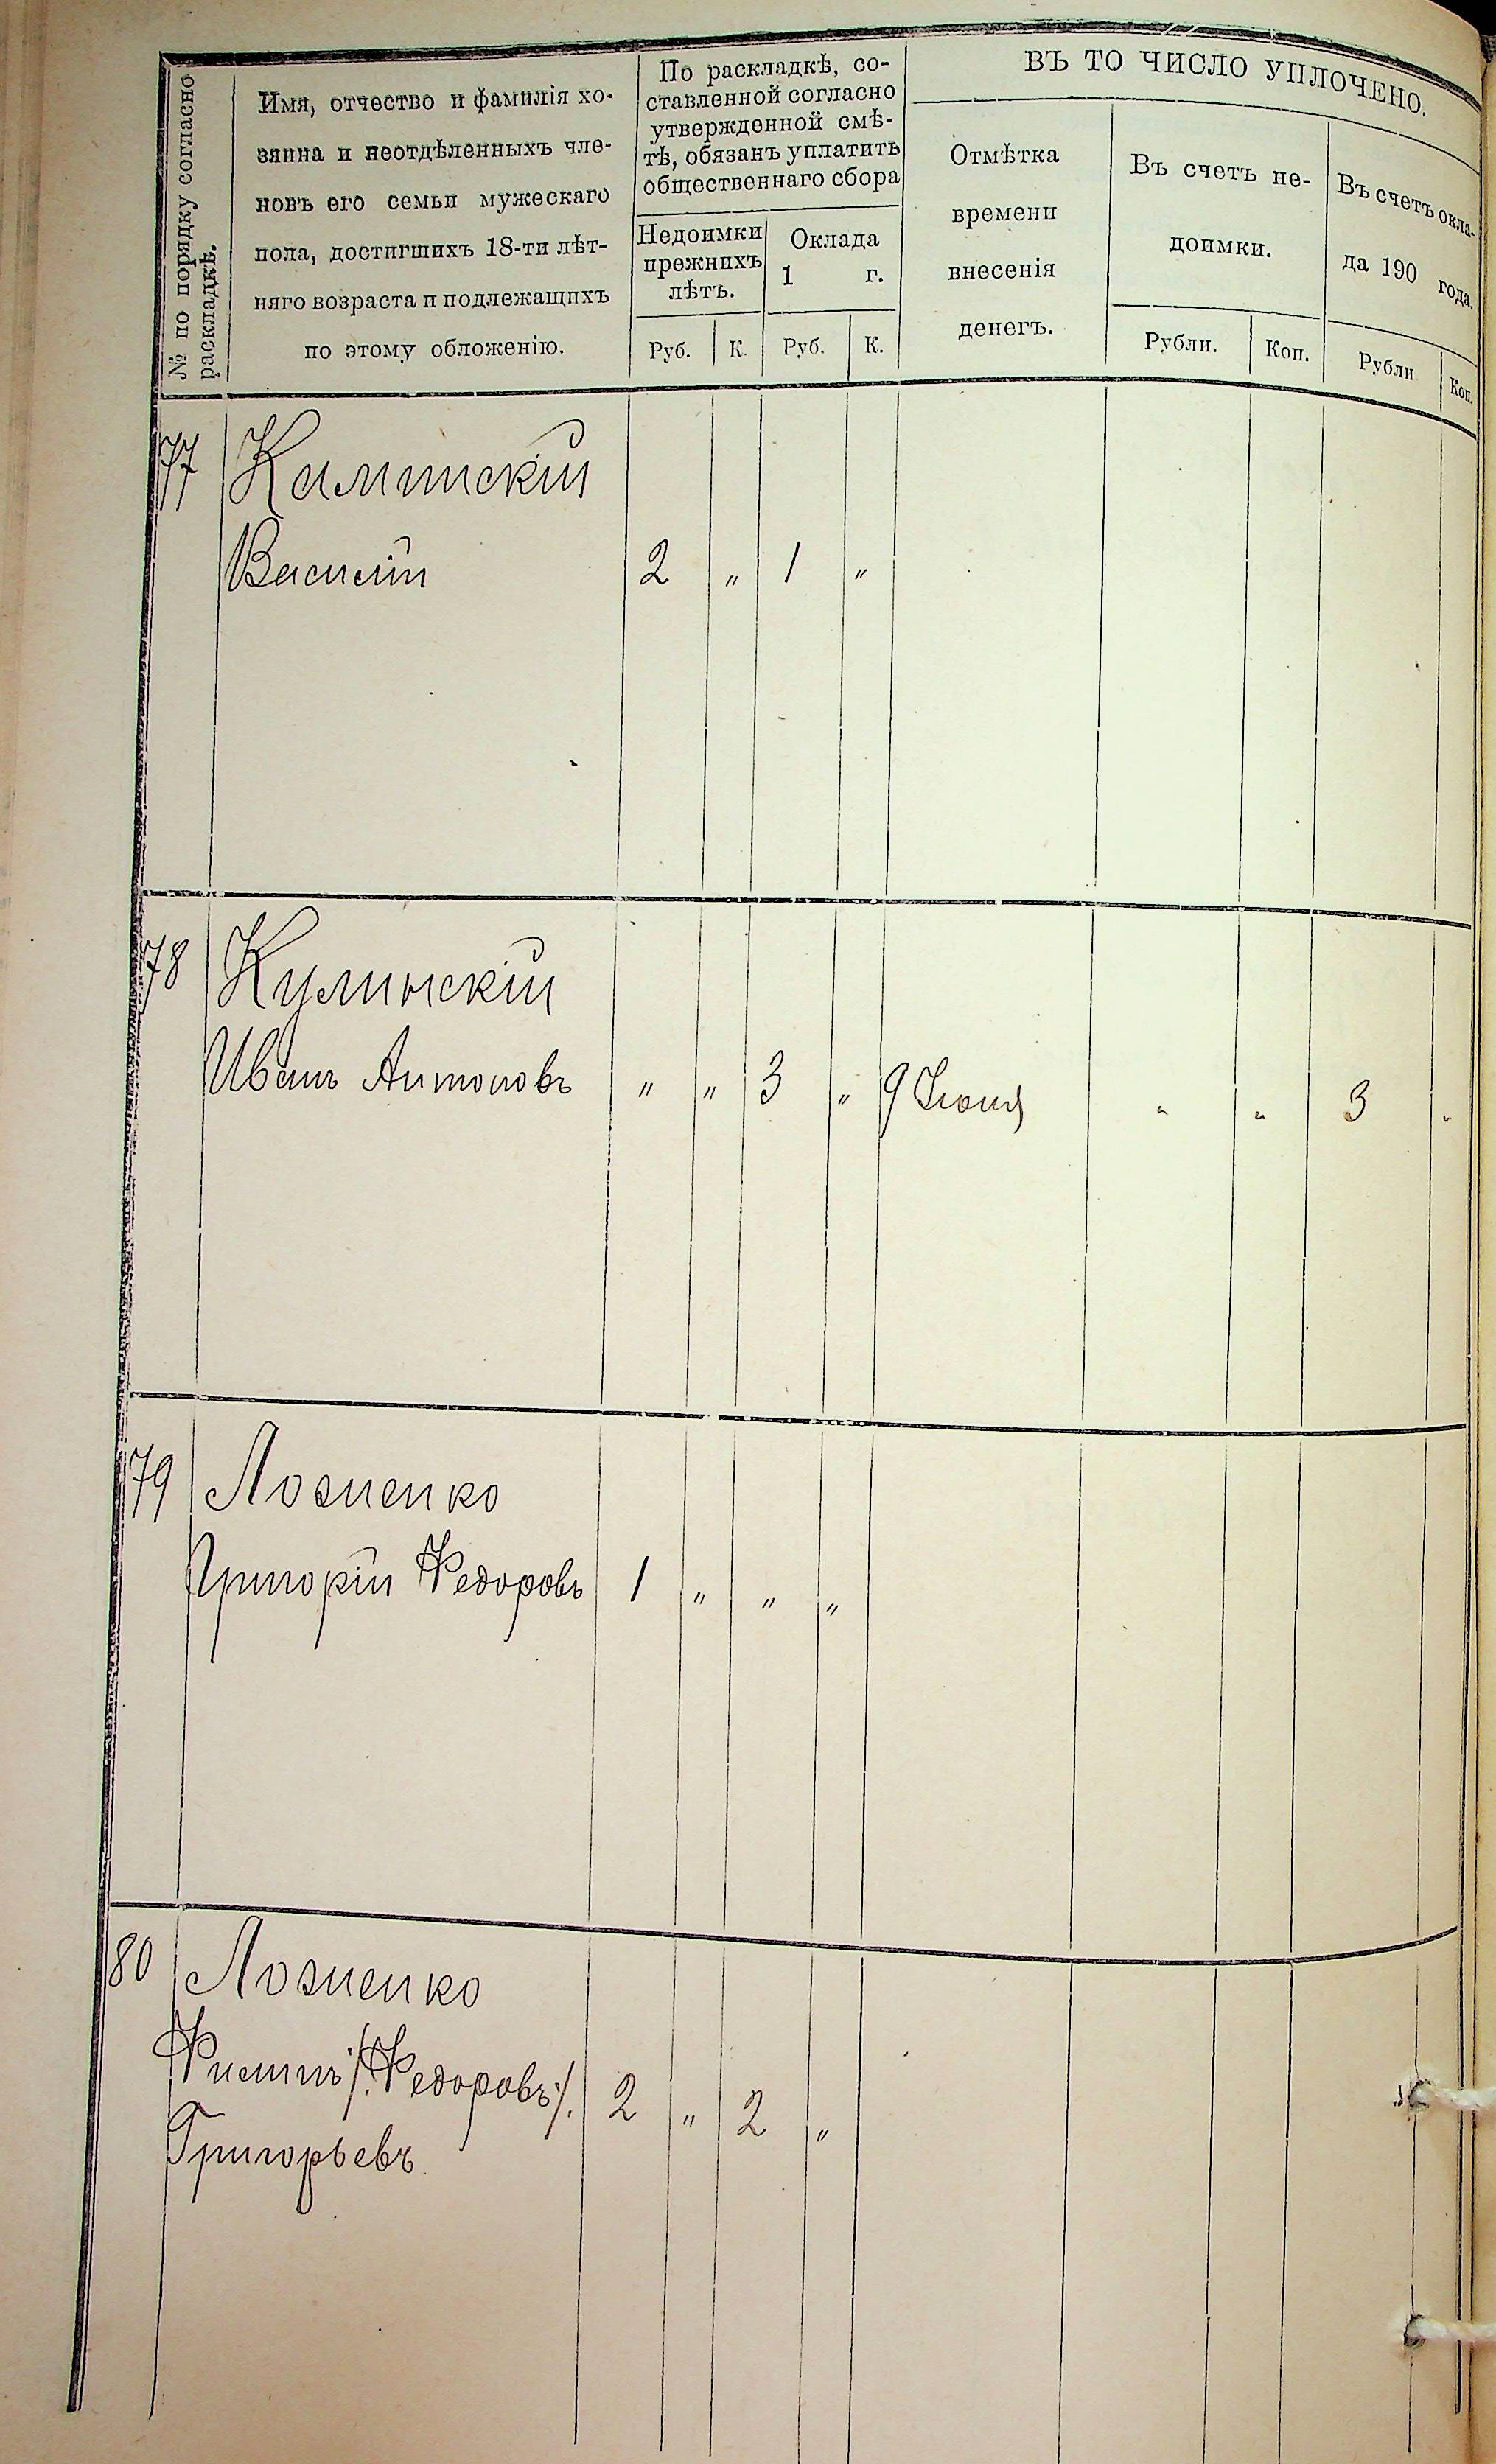 № по порядку согласно
раскладкѣ.
Имя, отчество и фамилія хо-
зяина и неотдѣленныхъ чле-
новъ его семьи мужескаго
пола, достигшихъ 18-ти лѣт-
няго возраста и подлежащихъ
по этому обложенію.
По раскладкѣ, со-
ставленной согласно
утвержденной смѣ-
тѣ, обязанъ уплатить
общественнаго сбора
Недоимки
прежнихъ
лѣтъ.
Руб. К.
Оклада
1 г.
Руб. К.
ВЪ ТО ЧИСЛО УПЛОЧЕНО.
Отмѣтка
времени
внесенія
денегъ.
Въ счетъ не-
доимки.
Рубли. Коп.
Въ счетъ окла-
да 190 года.
Рубли Коп.
77 Калинскій
Василій 2 " 1 "
78 Кулинскій
Иванъ Антоновъ " " 3 " 9 Іюня " " 3 "
79 Лозиенко
Григорій Федоровъ 1 " " "
80 Лозиенко
Филипъ /:Федоровъ:/. 2 " 2 "
Григорьевъ